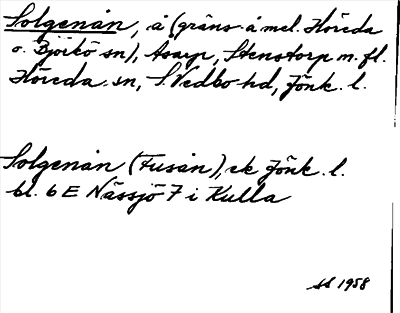 Solgenån, å (gräns-å mel. Höreda
o. Björkö sn), Asarp, Stenstorp m. fl.
Höreda sn, S. Vedbo hd, Jönk. l.
Solgenån (Fusån), ek Jönk. l.
bl. 6 E Nässjö 7 i Kulla
SS 1958